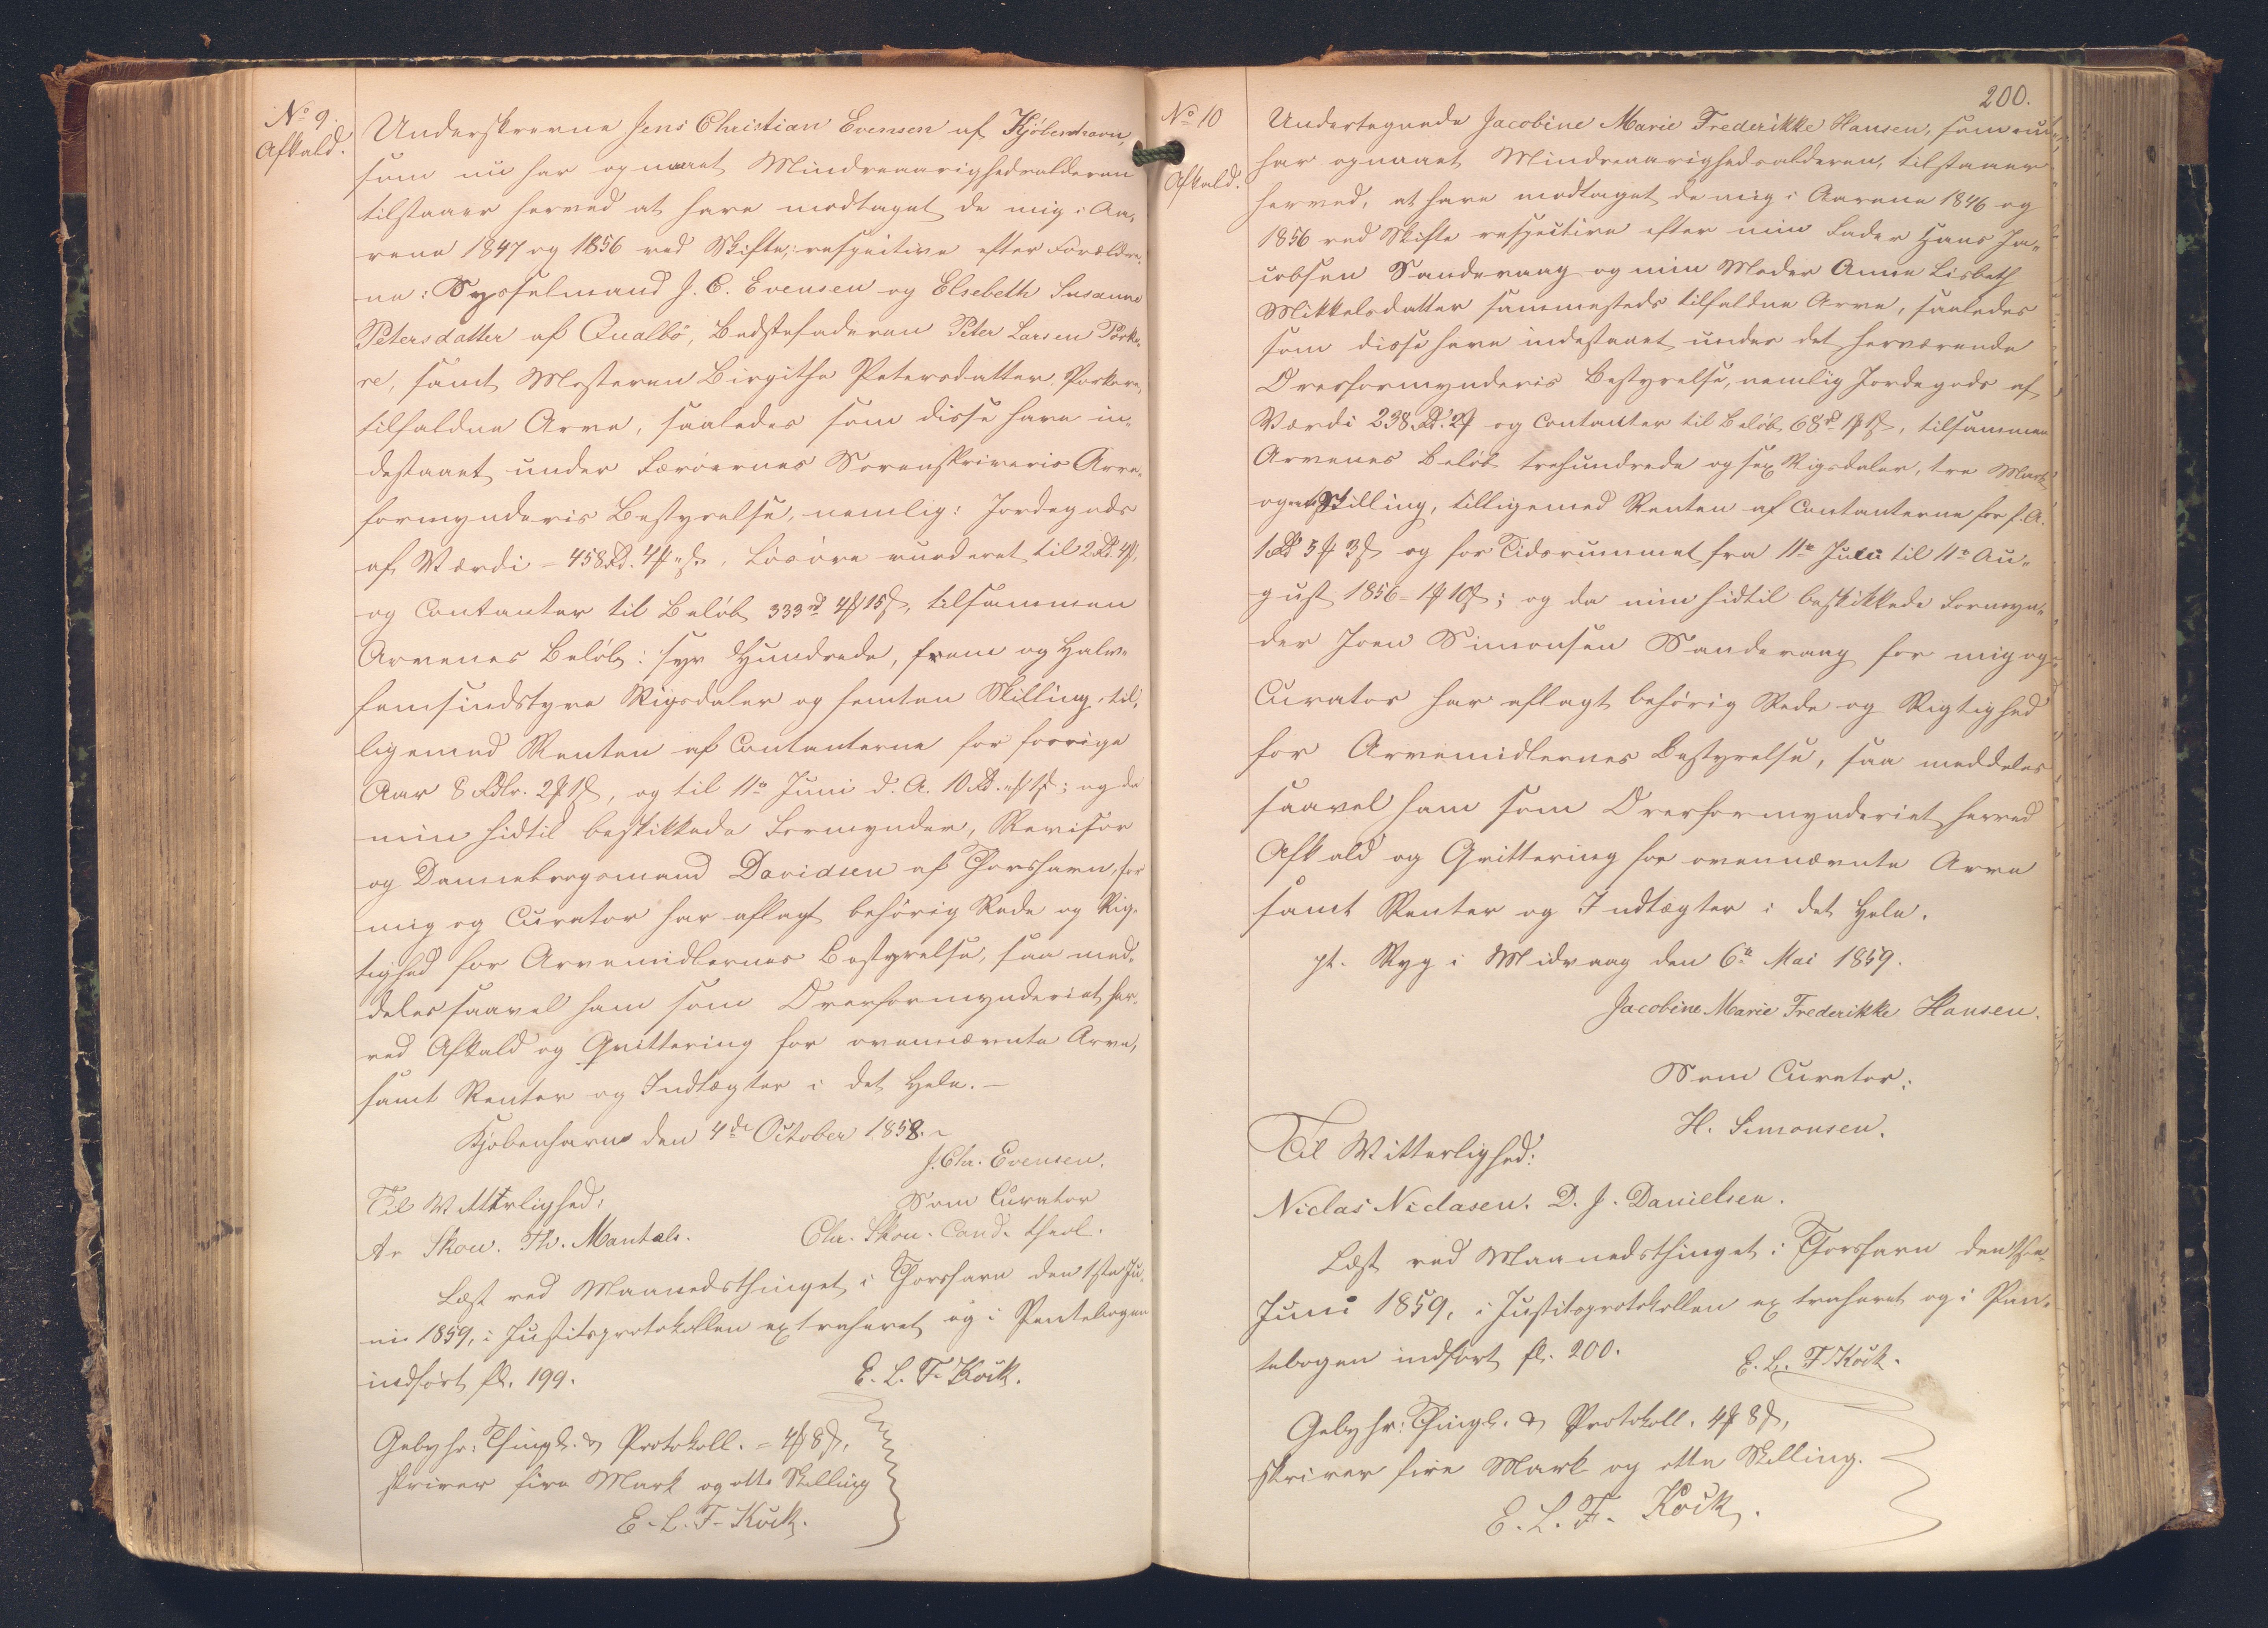 No 9.
Afkald.
Underskrevne Jens Christian Evensen af Kjöbenhavn,
som nu har opnaaet Mindreaarighedsalderen
tilstaaer herved at have modtaget de mig i Aa„
rene 1847 og 1856 ved Skifte, respective efter Forældre„
ne: Sysselmand J. C. Evensen og Elsebeth Susanne
Petersdatter af Qualbö, Bedstefaderen Peter Larsen Porke„
re, samt Mosteren Birgithe Petersdatter Porkere,
tilfaldne Arve, saaledes som disse have in„
destaaet under Færöernes Sorenskriveris Over„
formynderis Bestyrelse, nemlig: Jordegods
af Værdi = 458 Rd. 4 ₰ „ s., Lösöre vurderet til 2 Rd. 4 ₰,
og Contanter til Beløb 333 rd 4 ₰ 15 s, tilsammen
Arvenes Beløb: syv Hundrede, fem og halv„
femsindstyve Rigsdaler og femten Skilling, til„
ligemed Renten af Contanterne for forrige
Aar 8 Rdlr. 2 ₰ 1 s, og til 11te Juni d. A. 10 Rd. „ ₰ 1 s; og da
min hidtil beskikkede Formynder, Revisor
og Dannebrogsmand Davidsen af Thorshavn, for
mig og Curator har aflagt behörig Rede og Rig„
tighed for Arvemidlernes Bestyrelse, saa med„
deles saavel ham som Overformynderiet her„
ved Afkald og Qvittering for ovennævnte Arve,
samt Renter og Indtægter i det Hele. —
Kjøbenhavn den 4de October 1858. ~
J. Chr. Evensen.
Til Vitterlighed: Som Curator
Skou. Th. Mantals. Chr. Skou. Cand. theol.
Læst ved Maanedsthinget i Thorshavn den 1ste Ju„
ni 1859, i Justitsprotokollen extraheret og i Pantebogen
indført fl. 199. E. L. F. Köck.
Gebyhr: Thingl. & Protokoll. = 4 ₰ 8 s,
skriver fire Mark og otte Skilling
E. L. F. Köck.
200.
No 10
Afkald.
Undertegnede Jacobine Marie Frederikke Hansen, som nu
har opnaaet Mindreaarighedsalderen, tilstaaer
herved, at have modtaget de mig i Aarene 1846 og
1856 ved Skifte respective efter min Fader Hans Ja„
cobsen Sandevaag og min Moder Anne Lisbeth
Mikkelsdatter sammesteds tilfaldne Arve, saaledes
som disse have indestaaet under det herværende
Overformynderis Bestyrelse, nemlig Jordegods af
Værdi 238 Rd. 2 ₰ og Contanter til Beløb 68 rd 1 ₰ 1 s, tilsammen
Arvenes Beløb trehundrede og sex Rigsdaler, tre Mark
og en Skilling, tilligemed Renten af Contanterne for f. A.
1 Rd 5 ₰ 3 s og for Tidsrummet fra 11te Juli til 11te Au„
gust 1856 = 1 ₰ 10 s; og da min hidtil beskikkede Formyn„
der Joen Simonsen Sandevaag for mig og
Curator har aflagt behörig Rede og Rigtighed
for Arvemidlernes Bestyrelse, saa meddeles
saavel ham som Overformynderiet herved
Afkald og Qvittering for ovennævnte Arve
samt Renter og Indtægter i det Hele.
pt. Ryg i Midvaag den 6te Mai 1859.
Jacobine Marie Frederikke Hansen.
Som Curator:
H. Simonsen.
Til Vitterlighed:
Niclas Niclasen. D. J. Danielsen.
Læst ved Maanedsthinget i Thorshavn den 1ste
Juni 1859, i Justitsprotokollen extraheret og i Pan„
tebogen indført fl. 200. E. L. F. Köck.
Gebyhr: Thingl. & Protokoll. 4 ₰ 8 s,
skriver fire Mark og otte Skilling.
E. L. F. Köck.